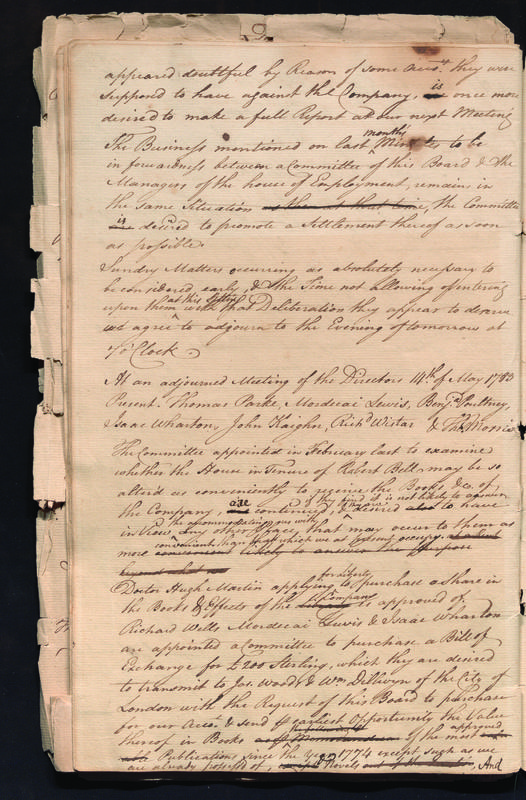 appeared doubtful by Reason of some Accots. they were
supposed to have against the Company, is once more
desired to make a full Report at our next Meeting
The Business mentioned on last months Minutes to be
in forwardness between a Committee of this Board & the
Managers of the house of Employment, remains in
the same Situation as then at that time, the Committee
is desired to promote a Settlement thereof as soon
as possible.
Sundry Matters occurring as absolutely necessary to
be considered early, & the Time not allowing of entering
upon them at this Sitting with that Deliberation they appear to deserve
we agree to adjourn to the Evening of tomorrow at
7 o'Clock
At an adjourned Meeting of the Directors 14th. of May 1783
Present. Thomas Parke, Mordecai Lewis, Benjn. Poultney,
Isaac Wharton, John Kaighn, Richd. Wistar & Thos. Morris
The Committee appointed in February last to examine
whether the House in Tenure of Robert Bell, may be so
alterd as conveniently to receive the Books &c. of
the Company, are continued, & desired if they find it is not likely to answer to have
in View any other place, that may occur to them as
accommodating us with
more convenient than that which we at present occupy,
likely to answer the purpose
Doctor Hugh Martin applying for Liberty to purchase a share in
the Books & Effects of the Library Company is approved of
Richard Wells, Mordecai Lewis & Isaac Wharton
are appointed a Committee to purchase a Bill of
Exchange for £200 Sterling, which they are desired
to transmit to Jos. Woods & Wm. Dillwyn of the City of
London with the Request of this Board to purchase
for our Accot. & send earliest Opportunity the Value
thereof in Books of the most approved
Publications since the year 1774 except such as we
are already possess'd of, Novels, And